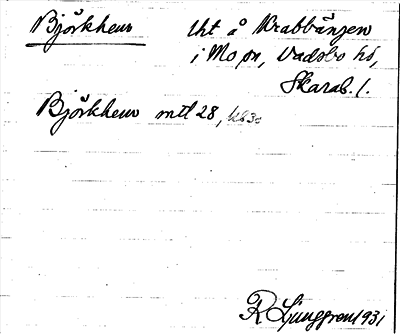 Björkhem lht å Krabbängen
i Mo sn, Vadsbo hd,
Skarab. l.
Björkhem mtl 28,
R Ljunggren 1931